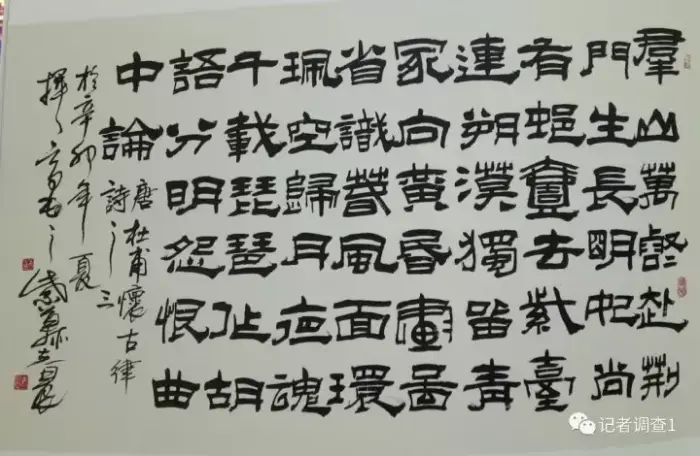 羣山萬壑赴荆
門生長明妃尚
有邨壹去紫臺
連朔漠獨留青
冢向黄昏畫圖
省識春風面環
珮空歸月夜魂
千載琵琶作胡
語分明怨恨曲
中論
唐杜甫懷古律
詩之三
於辛卯年夏
记者调查1